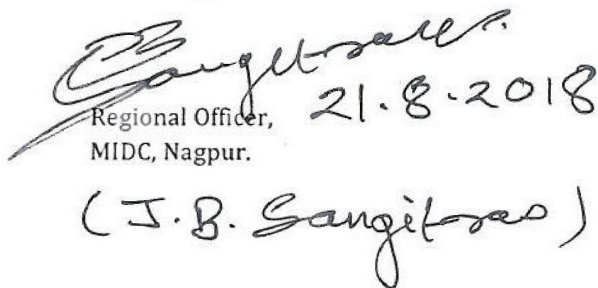 Sangitrao
21.8.2018
Regional Officer,
MIDC, Nagpur.
(J.B. Sangitrao)